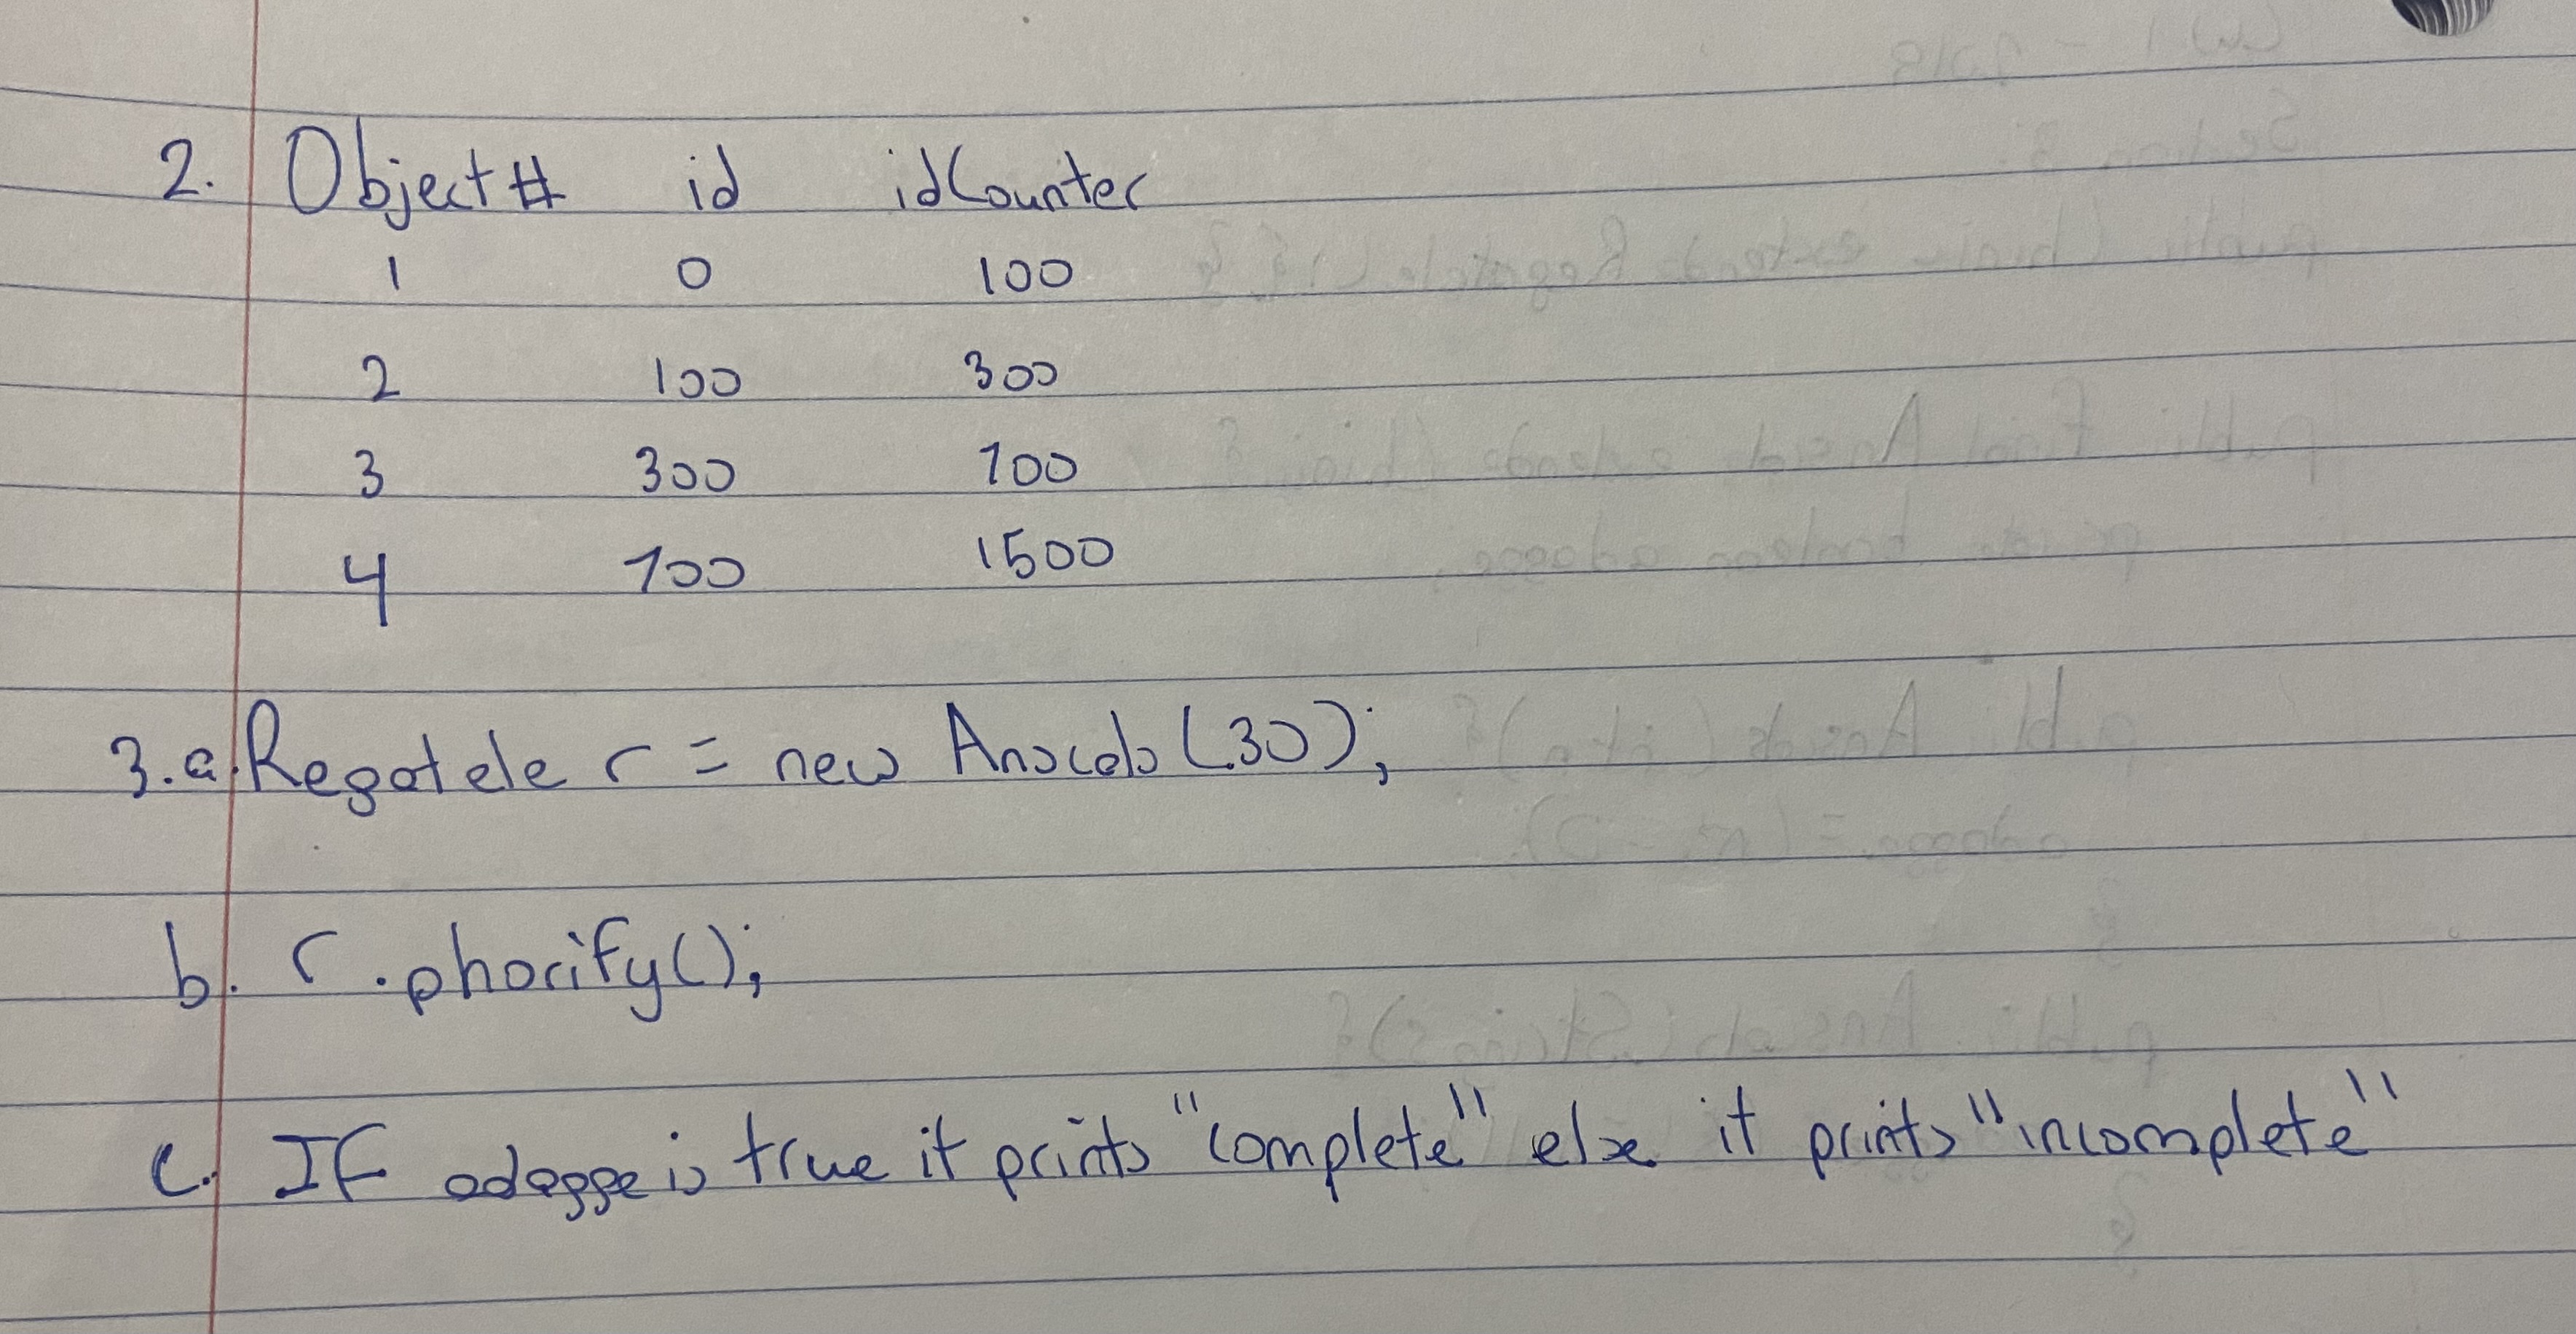 2. Object# id idCounter
1 0 100
2 100 300
3 300 700
4 700 1500
3.a. Regatele r = new (30);
b. r.phorify();
c. If adagge is true it prints "complete" else it prints "incomplete"